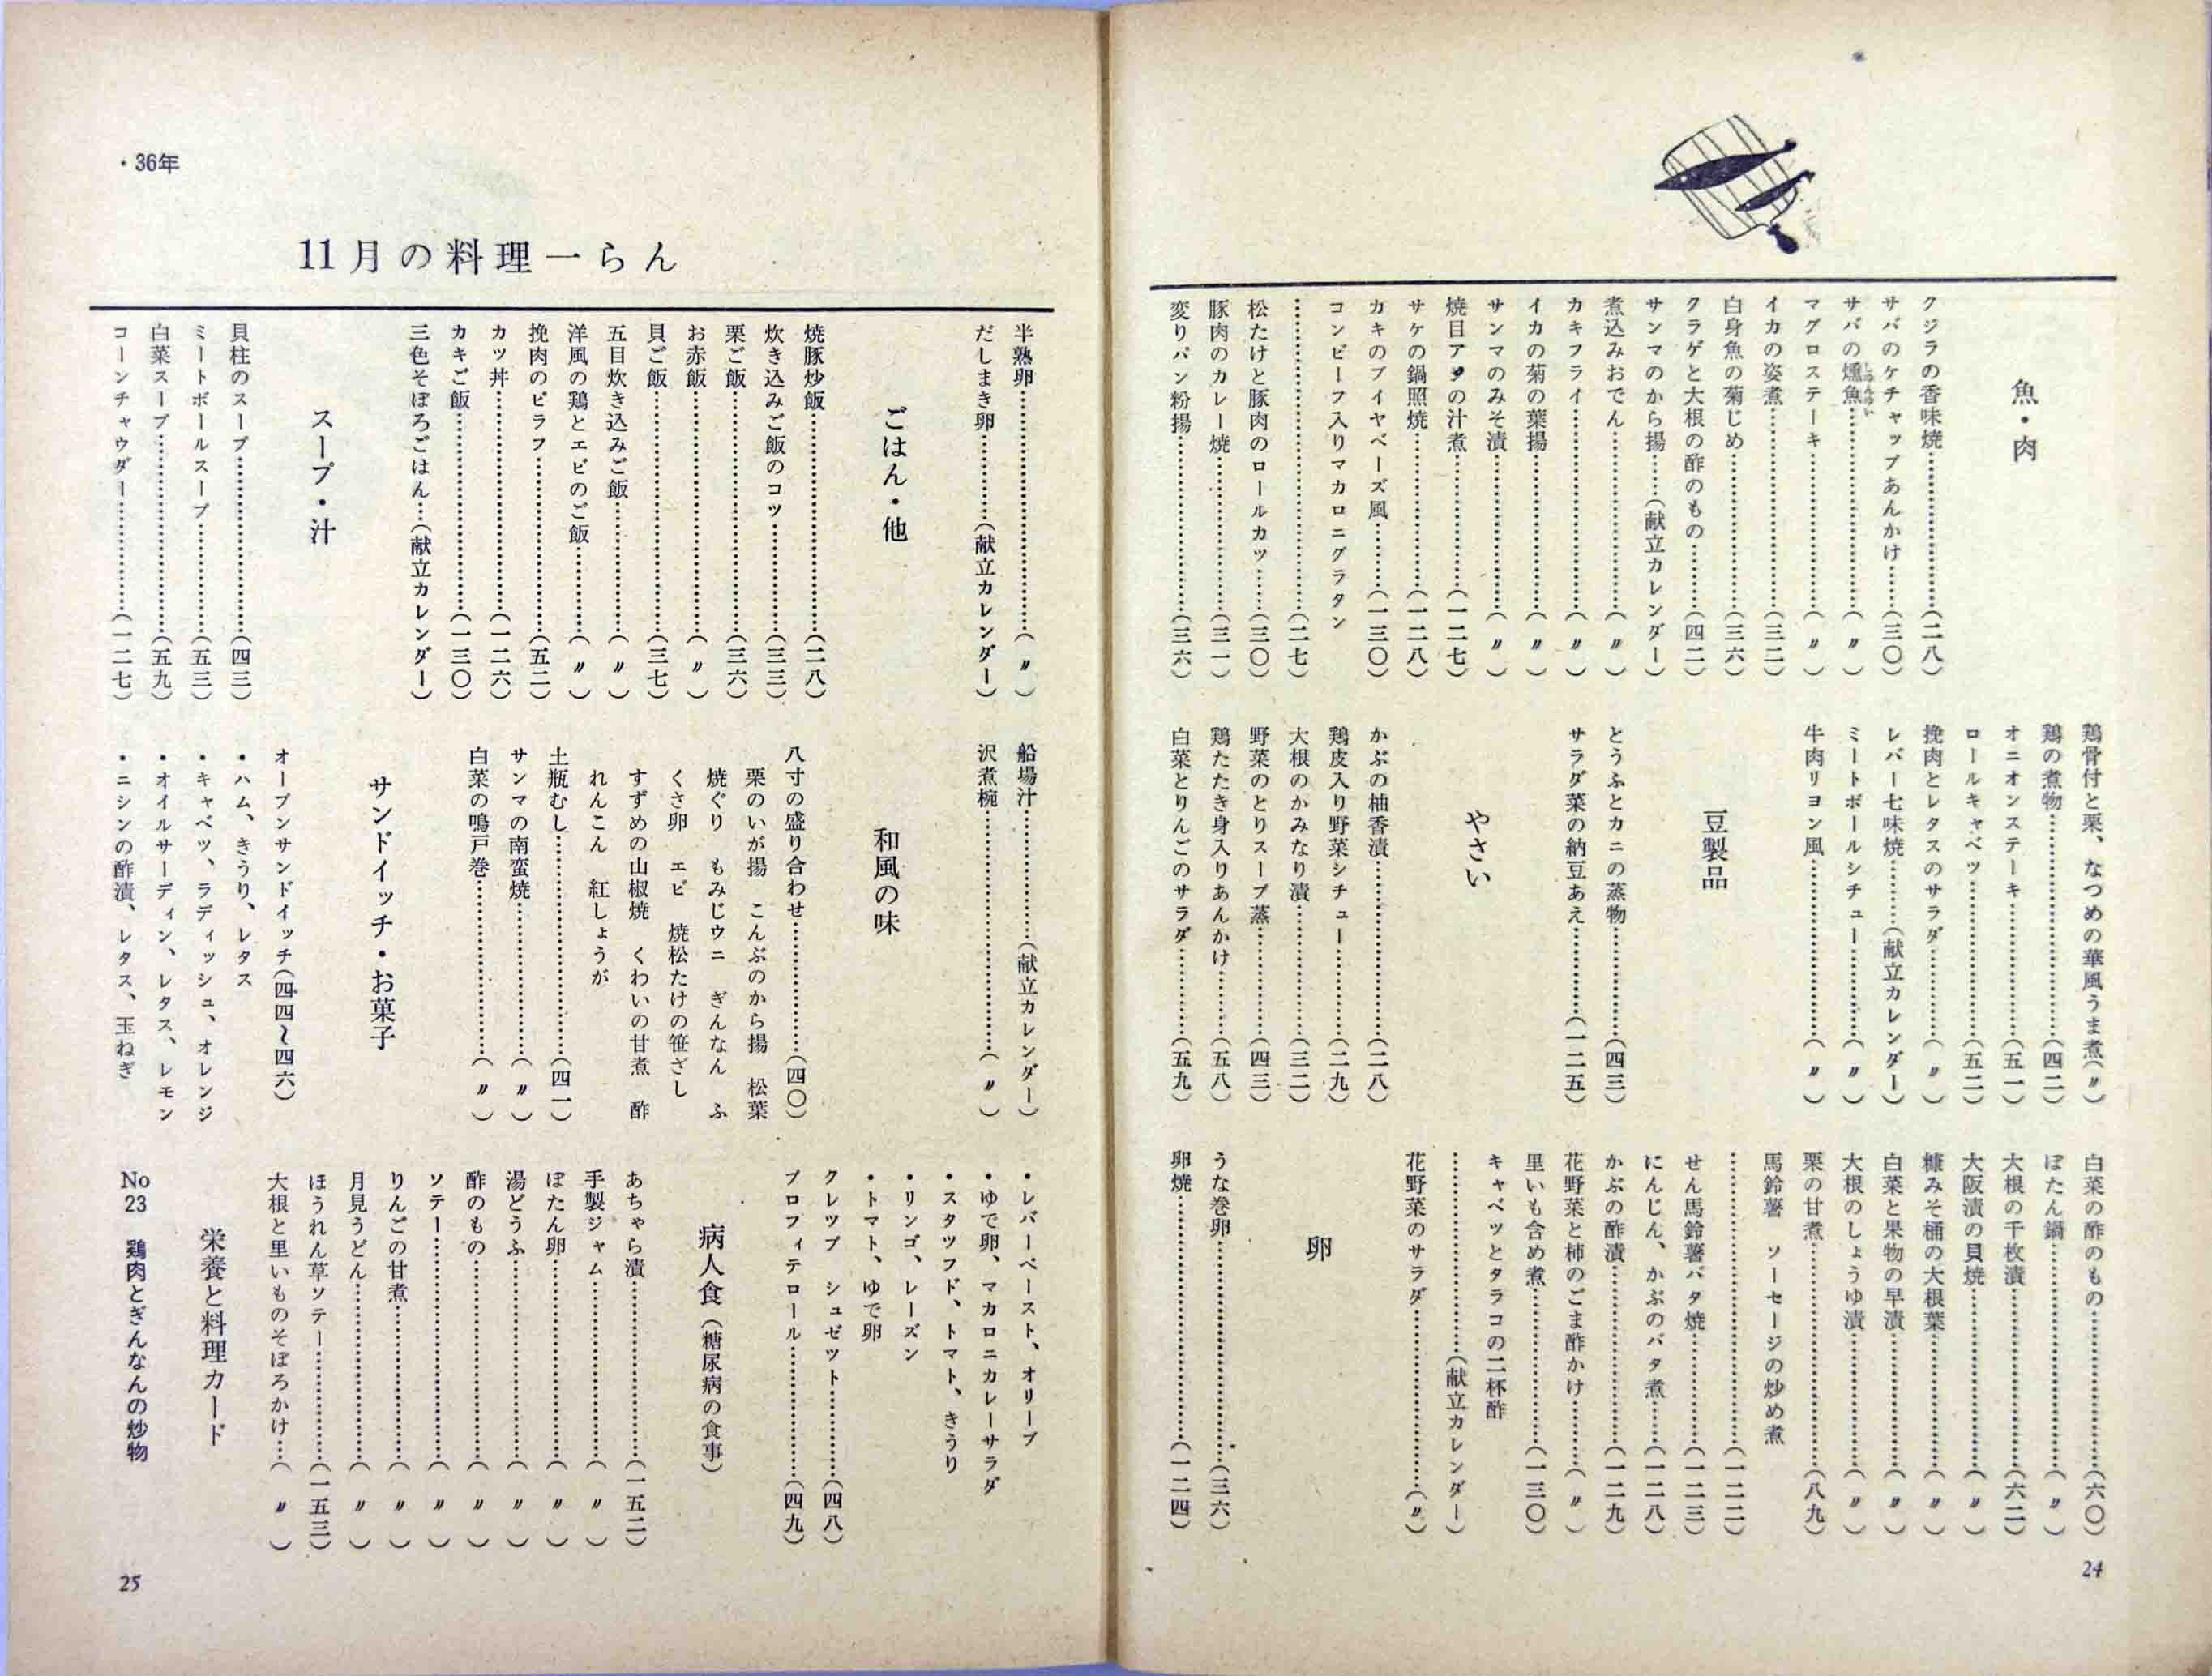 魚・肉
クジラの香味焼……………………(二八)
サバのケチャップあんかけ……(三〇)
サバの燻魚……………………(〃)
マグロステーキ……………………(〃)
イカの姿煮……………………(三二)
白身魚の菊じめ……………………(三六)
クラゲと大根の酢のもの………(四二)
サンマのから揚……(献立カレンダー)
煮込みおでん……………………(〃)
カキフライ……………………(〃)
イカの菊の葉揚……………………(〃)
サンマのみそ漬……………………(〃)
焼目アタの汁煮……………………(一二七)
サケの鍋照焼……………………(一二八)
カキのブイヤベーズ風………(一三〇)
コンビーフ入りマカロニグラタン
……………………………………(二七)
松たけと豚肉のロールカツ……(三〇)
豚肉のカレー焼……………………(三一)
変りパン粉揚……………………(三六)
鶏骨付と栗、なつめの華風うま煮(〃)
鶏の煮物……………………(四二)
オニオンステーキ………………(五一)
ロールキャベツ……………………(五二)
挽肉とレタスのサラダ…………(〃)
レバー七味焼………(献立カレンダー)
ミートボールシチュー…………(〃)
牛肉リヨン風……………………(〃)
豆製品
とうふとカニの蒸物……………(四三)
サラダ菜の納豆あえ…………(一二五)
やさい
かぶの柚香漬……………………(二八)
鶏皮入り野菜シチュー…………(二九)
大根のかみなり漬………………(三二)
野菜のとりスープ蒸……………(四三)
鶏たたき身入りあんかけ………(五八)
白菜とりんごのサラダ…………(五九)
白菜の酢のもの…………………(六〇)
ぼたん鍋……………………(〃)
大根の千枚漬……………………(六二)
大阪漬の貝焼……………………(〃)
糠みそ桶の大根葉………………(〃)
白菜と果物の早漬………………(〃)
大根のしょうゆ漬………………(〃)
栗の甘煮……………………(八九)
馬鈴薯　ソーセージの炒め煮
……………………………………(一二二)
せん馬鈴薯バタ焼……………(一二三)
にんじん、かぶのバタ煮……(一二八)
かぶの酢漬……………………(一二九)
花野菜と柿のごま酢かけ………(〃)
里いも含め煮…………………(一三〇)
キャベツとタラコの二杯酢
………………………(献立カレンダー)
花野菜のサラダ……………………(〃)
卵
うな巻卵……………………(三六)
卵焼……………………(一二四)
24
・36年
11月の料理一らん
半熟卵……………………(〃)
だしまき卵…………(献立カレンダー)
ごはん・他
焼豚炒飯……………………(二八)
炊き込みご飯のコツ……………(三三)
栗ご飯……………………(三六)
お赤飯……………………(〃)
貝ご飯……………………(三七)
五目炊き込みご飯………………(〃)
洋風の鶏とエビのご飯…………(〃)
挽肉のピラフ……………………(五二)
カツ丼……………………(一二六)
カキご飯……………………(一三〇)
三色そぼろごはん…(献立カレンダー)
スープ・汁
貝柱のスープ……………………(四三)
ミートボールスープ……………(五三)
白菜スープ……………………(五九)
コーンチャウダー……………(一二七)
船場汁………………(献立カレンダー)
沢煮椀……………………(〃)
和風の味
八寸の盛り合わせ………………(四〇)
栗のいが揚　こんぶのから揚　松葉
焼ぐり　もみじウニ　ぎんなん　ふ
くさ卵　エビ　焼松たけの笹ざし
すずめの山椒焼　くわいの甘煮　酢
れんこん　紅しょうが
土瓶むし……………………(四一)
サンマの南蛮焼……………………(〃)
白菜の鳴戸巻……………………(〃)
サンドイッチ・お菓子
オープンサンドイッチ(四四〜四六)
・ハム、きうり、レタス
・キャベツ、ラディッシュ、オレンジ
・オイルサーディン、レタス、レモン
・ニシンの酢漬、レタス、玉ねぎ
・レバーペースト、オリーブ
・ゆで卵、マカロニカレーサラダ
・スタッフド、トマト、きうり
・リンゴ、レーズン
・トマト、ゆで卵
クレツプ　シュゼット…………(四八)
プロフィテロール………………(四九)
病人食（糖尿病の食事）
あちゃら漬……………………(一五二)
手製ジャム……………………(〃)
ぼたん卵……………………(〃)
湯どうふ……………………(〃)
酢のもの……………………(〃)
ソテー……………………(〃)
りんごの甘煮……………………(〃)
月見うどん……………………(〃)
ほうれん草ソテー……………(一五三)
大根と里いものそぼろかけ……(〃)
栄養と料理カード
No23　鶏肉とぎんなんの炒物
25